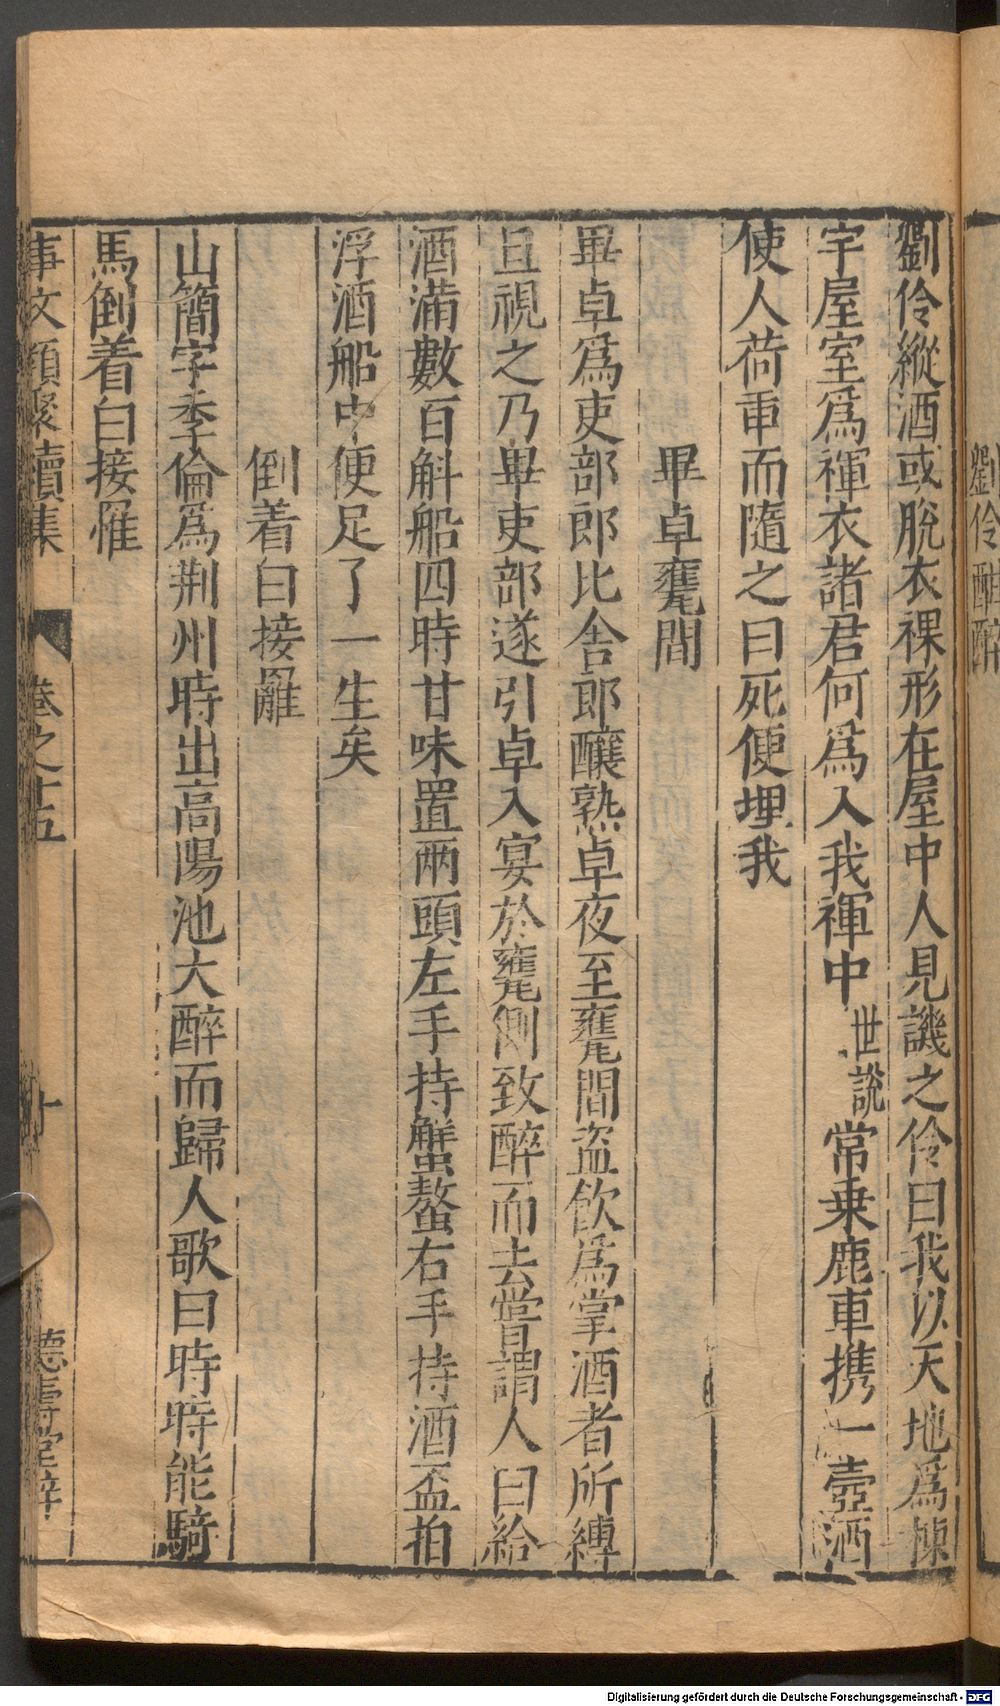 劉伶酣醉
劉伶縱酒或脫衣裸形在屋中人見譏之伶曰我以天地爲棟
宇屋室爲褌衣諸君何爲入我褌中世說常乗鹿車携一壺酒
使人荷臿而隨之曰死便埋我
畢卓甕間
畢卓爲吏部郎比舍郎釀熟卓夜至甕間盜飲爲掌酒者所縛
旦視之乃畢吏部遂引卓入宴於甕側致醉而去嘗謂人曰給
酒滿數百斛船四時甘味置兩頭左手持蟹螯右手持酒盃拍
浮酒船中便足了一生矣
倒着白接䍦
山簡字季倫爲荆州時出高陽池大醉而歸人歌曰時時能騎
馬倒着白接䍦
事文類聚續集 卷之十五 十 德壽堂梓
Digitalisierung gefördert durch die Deutsche Forschungsgemeinschaft - DFG